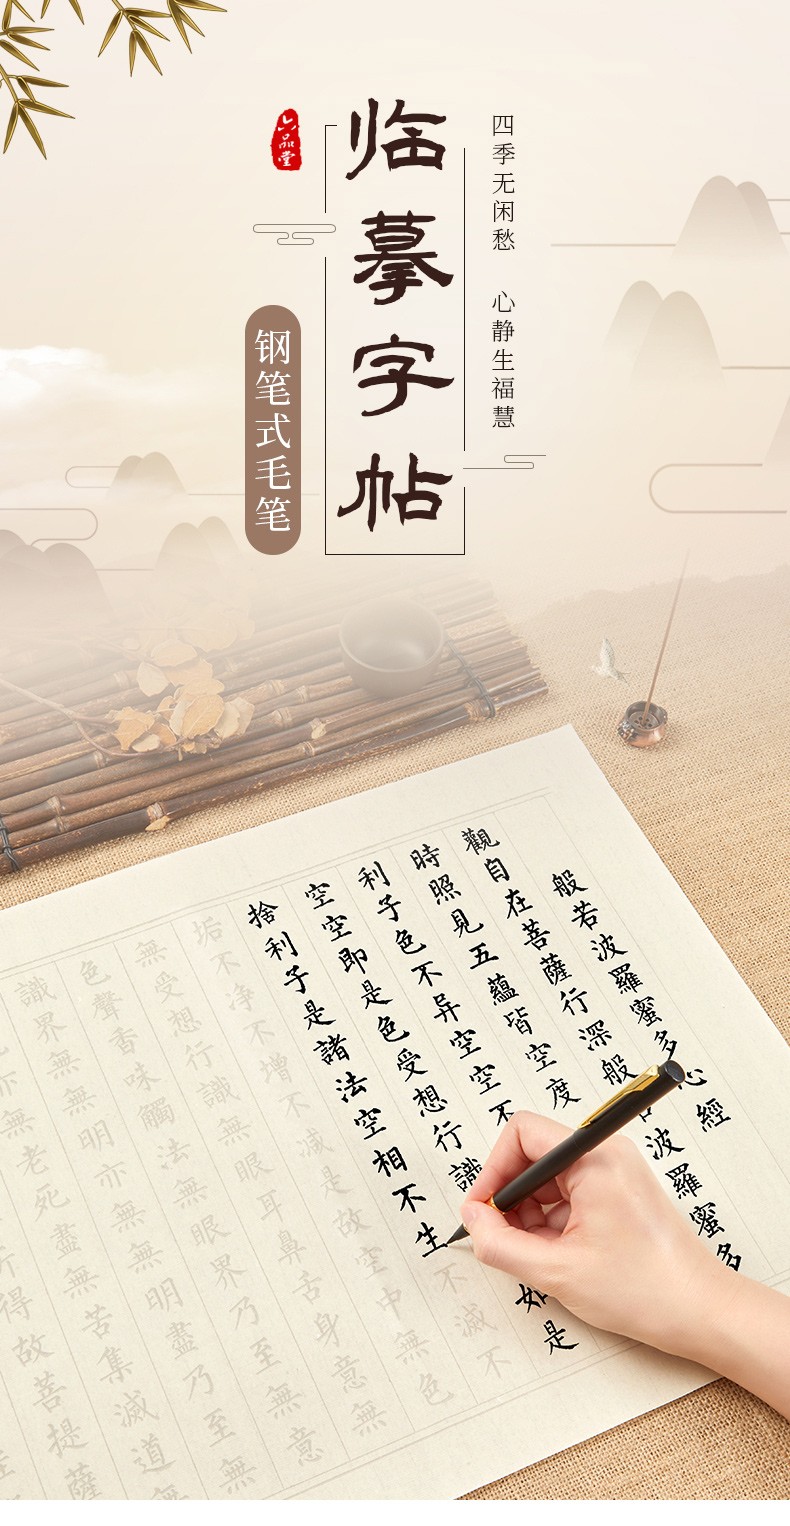 六品堂
临摹字帖
四季无闲愁 心静生福慧
钢笔式毛笔
般若波羅蜜多心經
觀自在菩薩行深般波羅蜜多
時照見五蘊皆空度
利子色不异空空不
空空即是色受想行識如是
捨利子是諸法空相不生不滅不
垢不净不增不减是故空中無色
無受想行識無眼耳鼻舌身意無
色聲香味觸法無眼界乃至無意
識界無無明亦無無明盡乃至無
亦無老死盡無苦集滅道
得故菩提薩